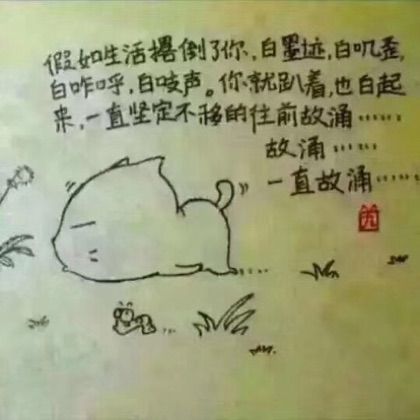 假如生活撂倒了你,白墨迹,白叽歪,
白咋呼,白吱声。你就趴着,也白起
来,一直坚定不移的往前故涌……
故涌……
一直故涌……